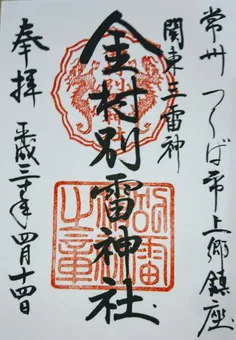 常州 つくば市上郷鎮座
関東三雷神
金村別雷神社
奉拝 平成三十年四月十四日